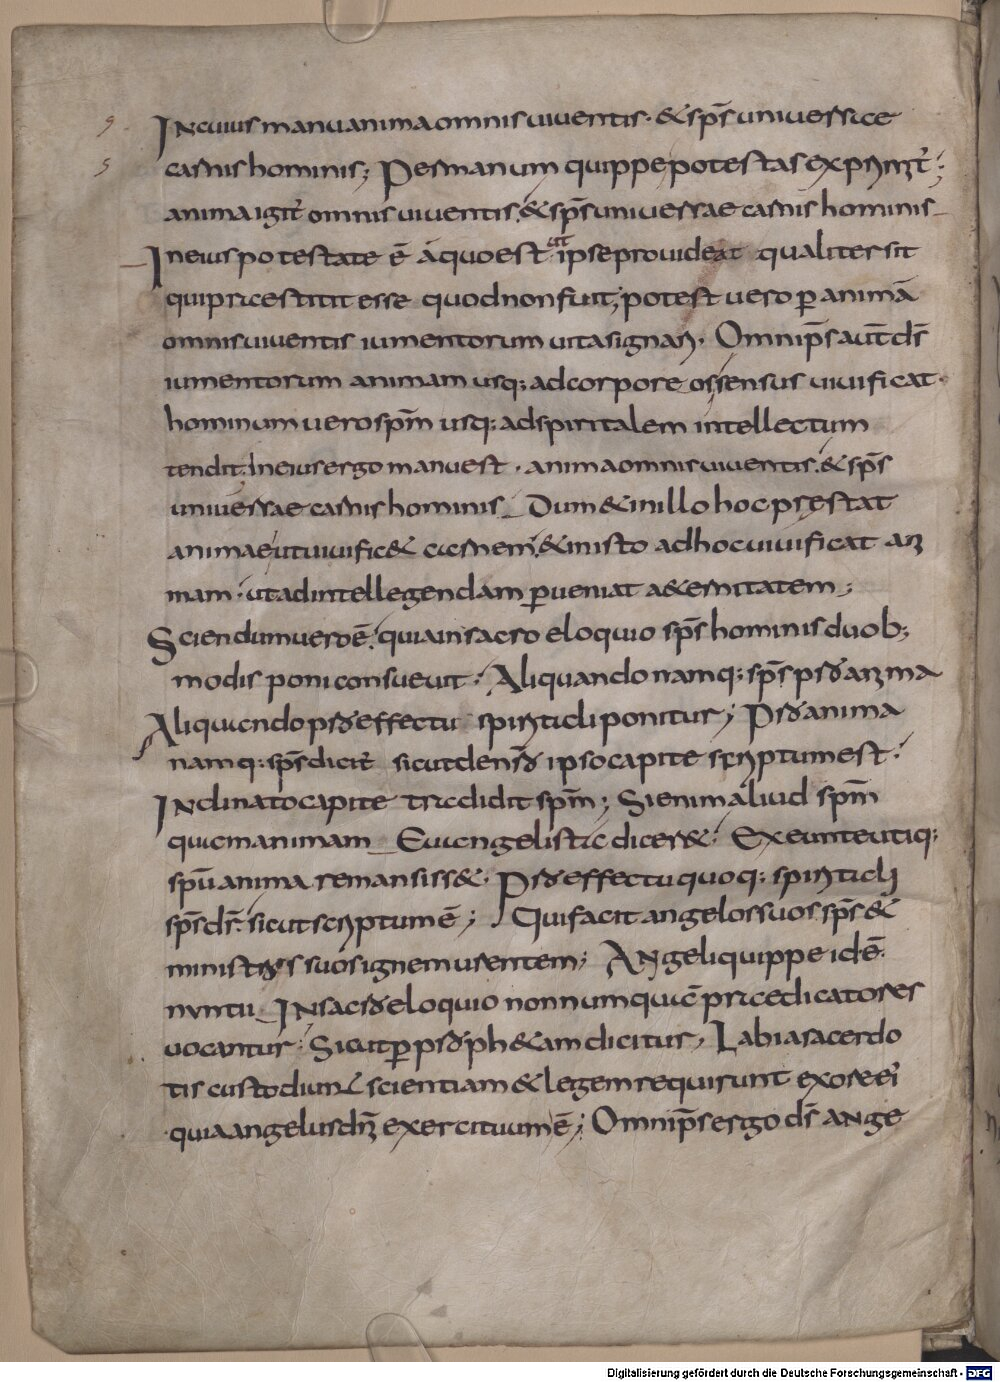 9.
In cuius manu anima omnis viventis. & sp̄s universae
5
carnis hominis; Per manum quippe potestas exprimit̄;
anima igit̄ omnis viventis, & sp̄s universae carnis hominis
In eius potestate ē a quo est ut ipse provideat qualiter sit
qui praestitit esse quod non fuit; potest vero p̱ animā
omnis viventis iumentorum vita signari. Omnip̄s aut̄ d̄s
iumentorum animam usq; ad corpore os sensus vivificat.
hominum vero sp̄m usq; ad spiritalem intellectum
tendit. In eius ergo manu est. anima omnis viventis. & sp̄s
universae carnis hominis Dum & in illo hoc pręstat
animae ut vivific& carnem, & in isto ad hoc vivificat ani
mam. ut ad intellegendam p̱veniat a&ernitatem;
Sciendum vero ē. quia in sacro eloquio sp̄s hominis duob;
modis poni consuevit. Aliquando namq; sp̄s pro anima
Aliquando pro effectu spiritali ponitur; Pro anima
namq; sp̄s dicit̄ sicut de nr̄o ipso capite scriptum est.
Inclinato capite tradidit sp̄m; Si enim aliud sp̄m
quam animam Evangelista dicer&. Exeunte utiq;
sp̄u anima remansiss&. Pro effectu quoq; spiritali
sp̄s dr̄. sicut scriptum ē; Qui facit angelos suos sp̄s &
ministros suos ignem urentem; Angeli quippe id ē.
nuntii In sacro eloquio nonnumquā praedicatores
vocantur. Sicut p̱ proph&am dicitur, Labia sacerdo
tis custodiunt scientiam & legem requirunt ex ore ei'
quia angelus dn̄i exercituum ē; Omnip̄s ergo d̄s ange
Digitalisierung gefördert durch die Deutsche Forschungsgemeinschaft - DFG